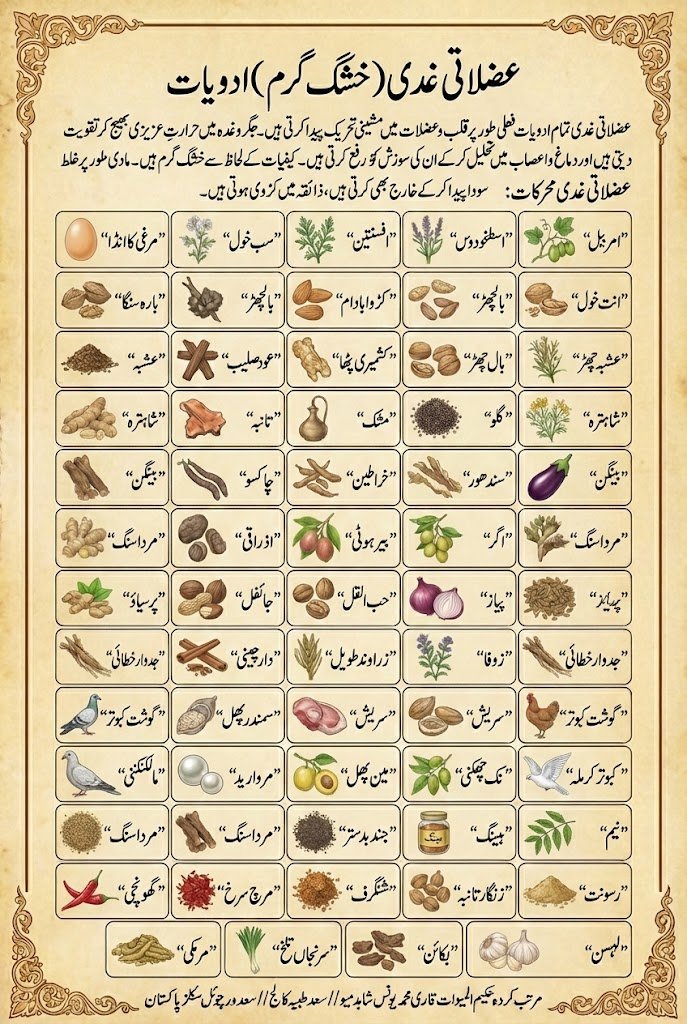 عضلاتی غدی (خشک گرم) ادویات
عضلاتی غدی تمام ادویات فعلی طور پر قلب و عضلات میں مشینی تحریک پیدا کرتی ہیں۔ جگر و غدہ میں حرارتِ عزیزی بھیج کر تقویت
دیتی ہیں اور دماغ و اعصاب میں تحلیل کر کے ان کی سوزش کو رفع کرتی ہیں۔ کیفیات کے لحاظ سے خشک گرم ہیں۔ مادی طور پر غلط
عضلاتی غدی محرکات: سودا پیدا کر کے خارج بھی کرتی ہیں، ذائقہ میں کڑوی ہوتی ہیں۔
”امر بیل“ ”اسطخودوس“ ”افسنتین“ ”سب خول“ ”مرغی کا انڈا“
”انت خول“ ”بالچھڑ“ ”کڑوا بادام“ ”بالچھڑ“ ”بارہ سنگا“
”عشبہ چھڑ“ ”بال چھڑ“ ”کشمیری پٹھا“ ”عود صلیب“ ”عشبہ“
”شاہترہ“ ”گلو“ ”مشک“ ”تانبہ“ ”شاہترہ“
”بینگن“ ”سندھور“ ”خراطین“ ”چاکسو“ ”بینگن“
”مرداسنگ“ ”اگر“ ”بیر بوٹی“ ”اذراقی“ ”مرداسنگ“
”پیاز“ ”حب القل“ ”جائفل“ ”پرسیاؤ“
”جدوار خطائی“ ”زوفا“ ”زراوند طویل“ ”دار چینی“ ”جدوار خطائی“
”گوشت کبوتر“ ”سریش“ ”سریش“ ”سمندر پھل“ ”گوشت کبوتر“
”کبوتر کرملہ“ ”نک چھکنی“ ”مین پھل“ ”مروارید“ ”مالکنکنی“
”نیم“ ”ہینگ“ ”جند بدستر“ ”مرداسنگ“ ”مرداسنگ“
”رسونت“ ”زنگار تانبہ“ ”شنگرف“ ”مرچ سرخ“ ”گھونچی“
”لہسن“ ”بکائن“ ”سرنجاں تلخ“ ”مرمکی“
مرتب کردہ حکیم المیوات قاری محمد یونس شاہد میو // سعد طبیہ کالج // سعد ورچوئل سکلز پاکستان